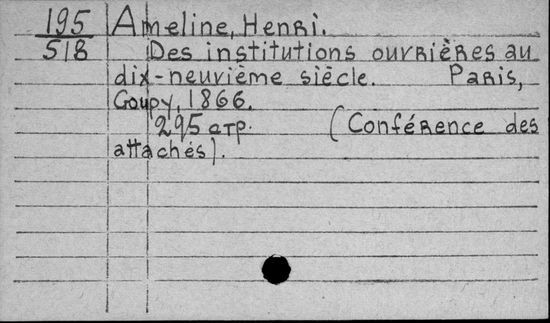 195 Ameline, Henri.
518 Des institutions ouvrières au
dix-neuvième siècle. Paris,
Goupy, 1866.
295 стр. (Conférence des
attachés).